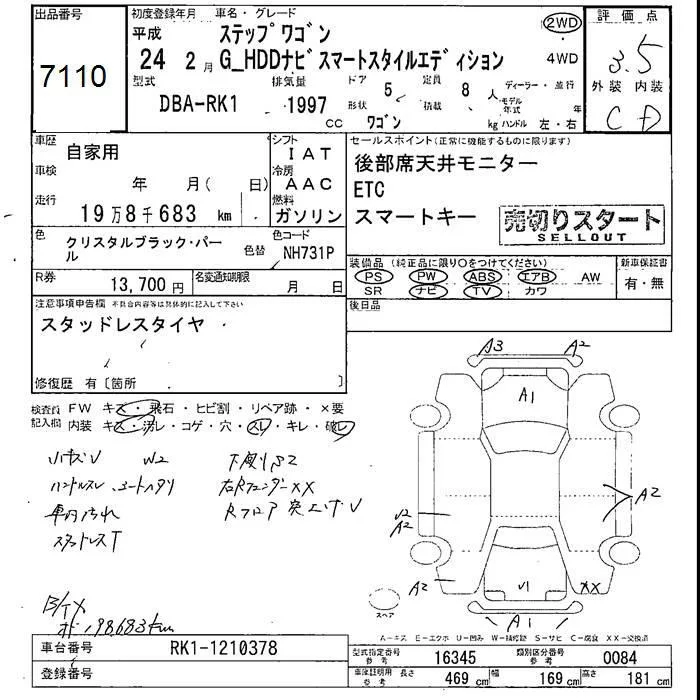 出品番号
7110
初度登録年月 車名・グレード
平成 ステップワゴン
24 2月 G_HDDナビスマートスタイルエディション
2WD
4WD
型式 排気量 ドア 定員 ディーラー・並行
DBA-RK1 1997 5 8人
CC 形状 ワゴン 積載 kg モデル年式 年
ハンドル 左・右
評価点
3.5
外装 内装
C D
車歴 自家用
車検 年 月( 日)
走行 19万8千683 km
シフト IAT
冷房 AAC
燃料 ガソリン
セールスポイント(正常に機能するものに限ります)
後部席天井モニター
ETC
スマートキー
売切りスタート
SELLOUT
色 クリスタルブラック・パール
色替
色コード NH731P
R券 13,700円
名変通知期限 月 日
装備品(純正品に限り○をつけてください)
PS PW ABS エアB AW
SR ナビ TV カワ
新車保証書
有・無
後日品
注意事項申告欄 不具合内容等は具体的に記入して下さい
スタッドレスタイヤ
修復歴 有〔箇所 〕
検査員記入欄 FW キズ・飛石・ヒビ割・リペア跡・×要
内装 キズ・汚レ・コゲ・穴・スレ・キレ・破レ
小キズU W2
ハンドルスレ
車内汚れ
スタットレスT
右Rフェンダー XX
Rフロア 突上げU
198683km
A3 A2
A1
A2
U2
A2
A2
U1
XX
A1
スペア
A-キズ E-エクボ U-凹み W-補修跡 S-サビ C-腐食 XX-交換済
車台番号 RK1-1210378
登録番号
型式指定番号 参考 16345
類別区分番号 参考 0084
車庫証明用 参考 長さ 469cm 幅 169cm 高さ 181cm